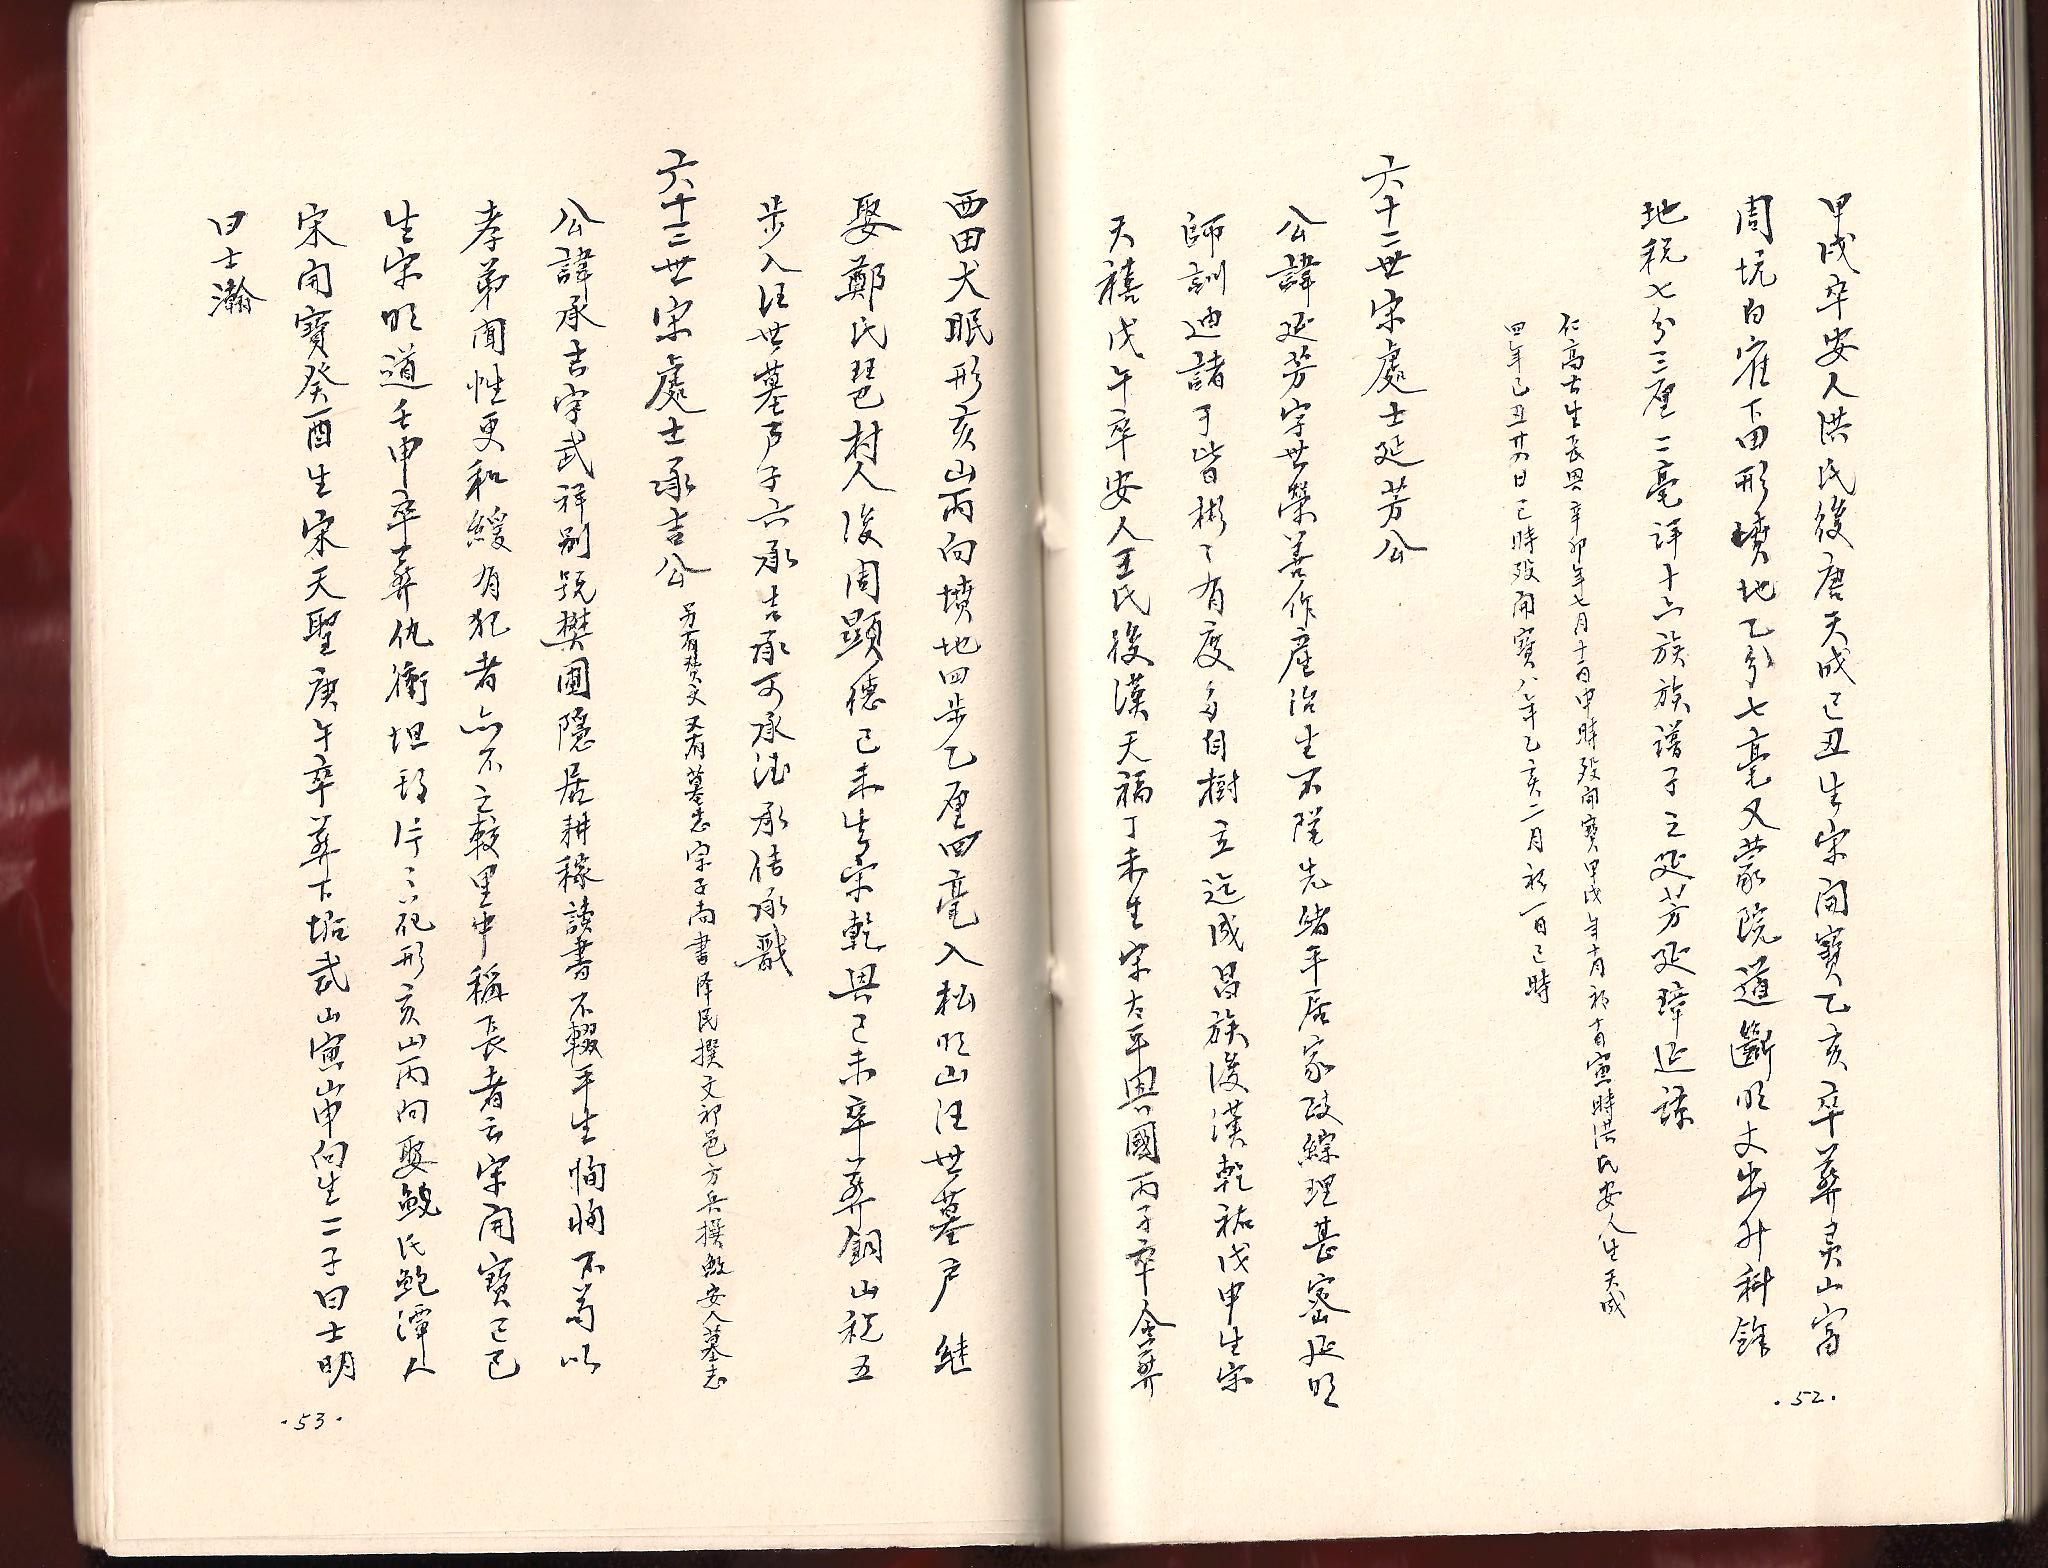 甲戌卒安人洪氏後唐天成己丑生宋開寶乙亥卒葬灵山富
周坑白雀下田形墳地乙分七毫又蒙院道斷明丈出升科餘
地税七分三厘二毫详十六族族譜子三延芳延璋延諒
仁高古生長興辛卯年七月十二日申時殁開寶甲戌年十月初十日寅時洪氏安人生天成
四年己丑廿四日巳時殁開寶八年乙亥二月初一日巳時
六十二世宋處士延芳公
公諱延芳字世榮善作產治生不隕先緒平居家政綜理甚密延明
師訓迪諸子皆彬彬有度多自樹立迄成昌族後漢乾祐戊申生宋
天禧戊午卒安人王氏後漢天福丁未生宋太平興國丙子卒合葬
·52·
西田犬眠形亥山丙向墳地四步乙厘四毫入松明山汪世墓户継
娶鄭氏琶村人後周顯德己未生宋乾興己未卒葬銅山税五
步入汪世墓户子六承吉承可承法承信承戩
六十三世宋處士承吉公 另有賛文又有墓志宗子尚書泽民撰文祁邑方岳撰鮑安人墓志
公諱承吉字武祥别號樊圃隱居耕稼讀書不輟平生恂恂不苟以
孝弟聞性更和緩有犯者亦不之較里中稱長者云宋開寶己巳
生宋明道壬申卒葬仇衝坦形亥山丙向娶鮑氏鮑潭人
宋開寶癸酉生宋天聖庚午卒葬下坵武山寅山申向生二子曰士明
曰士瀚
·53·